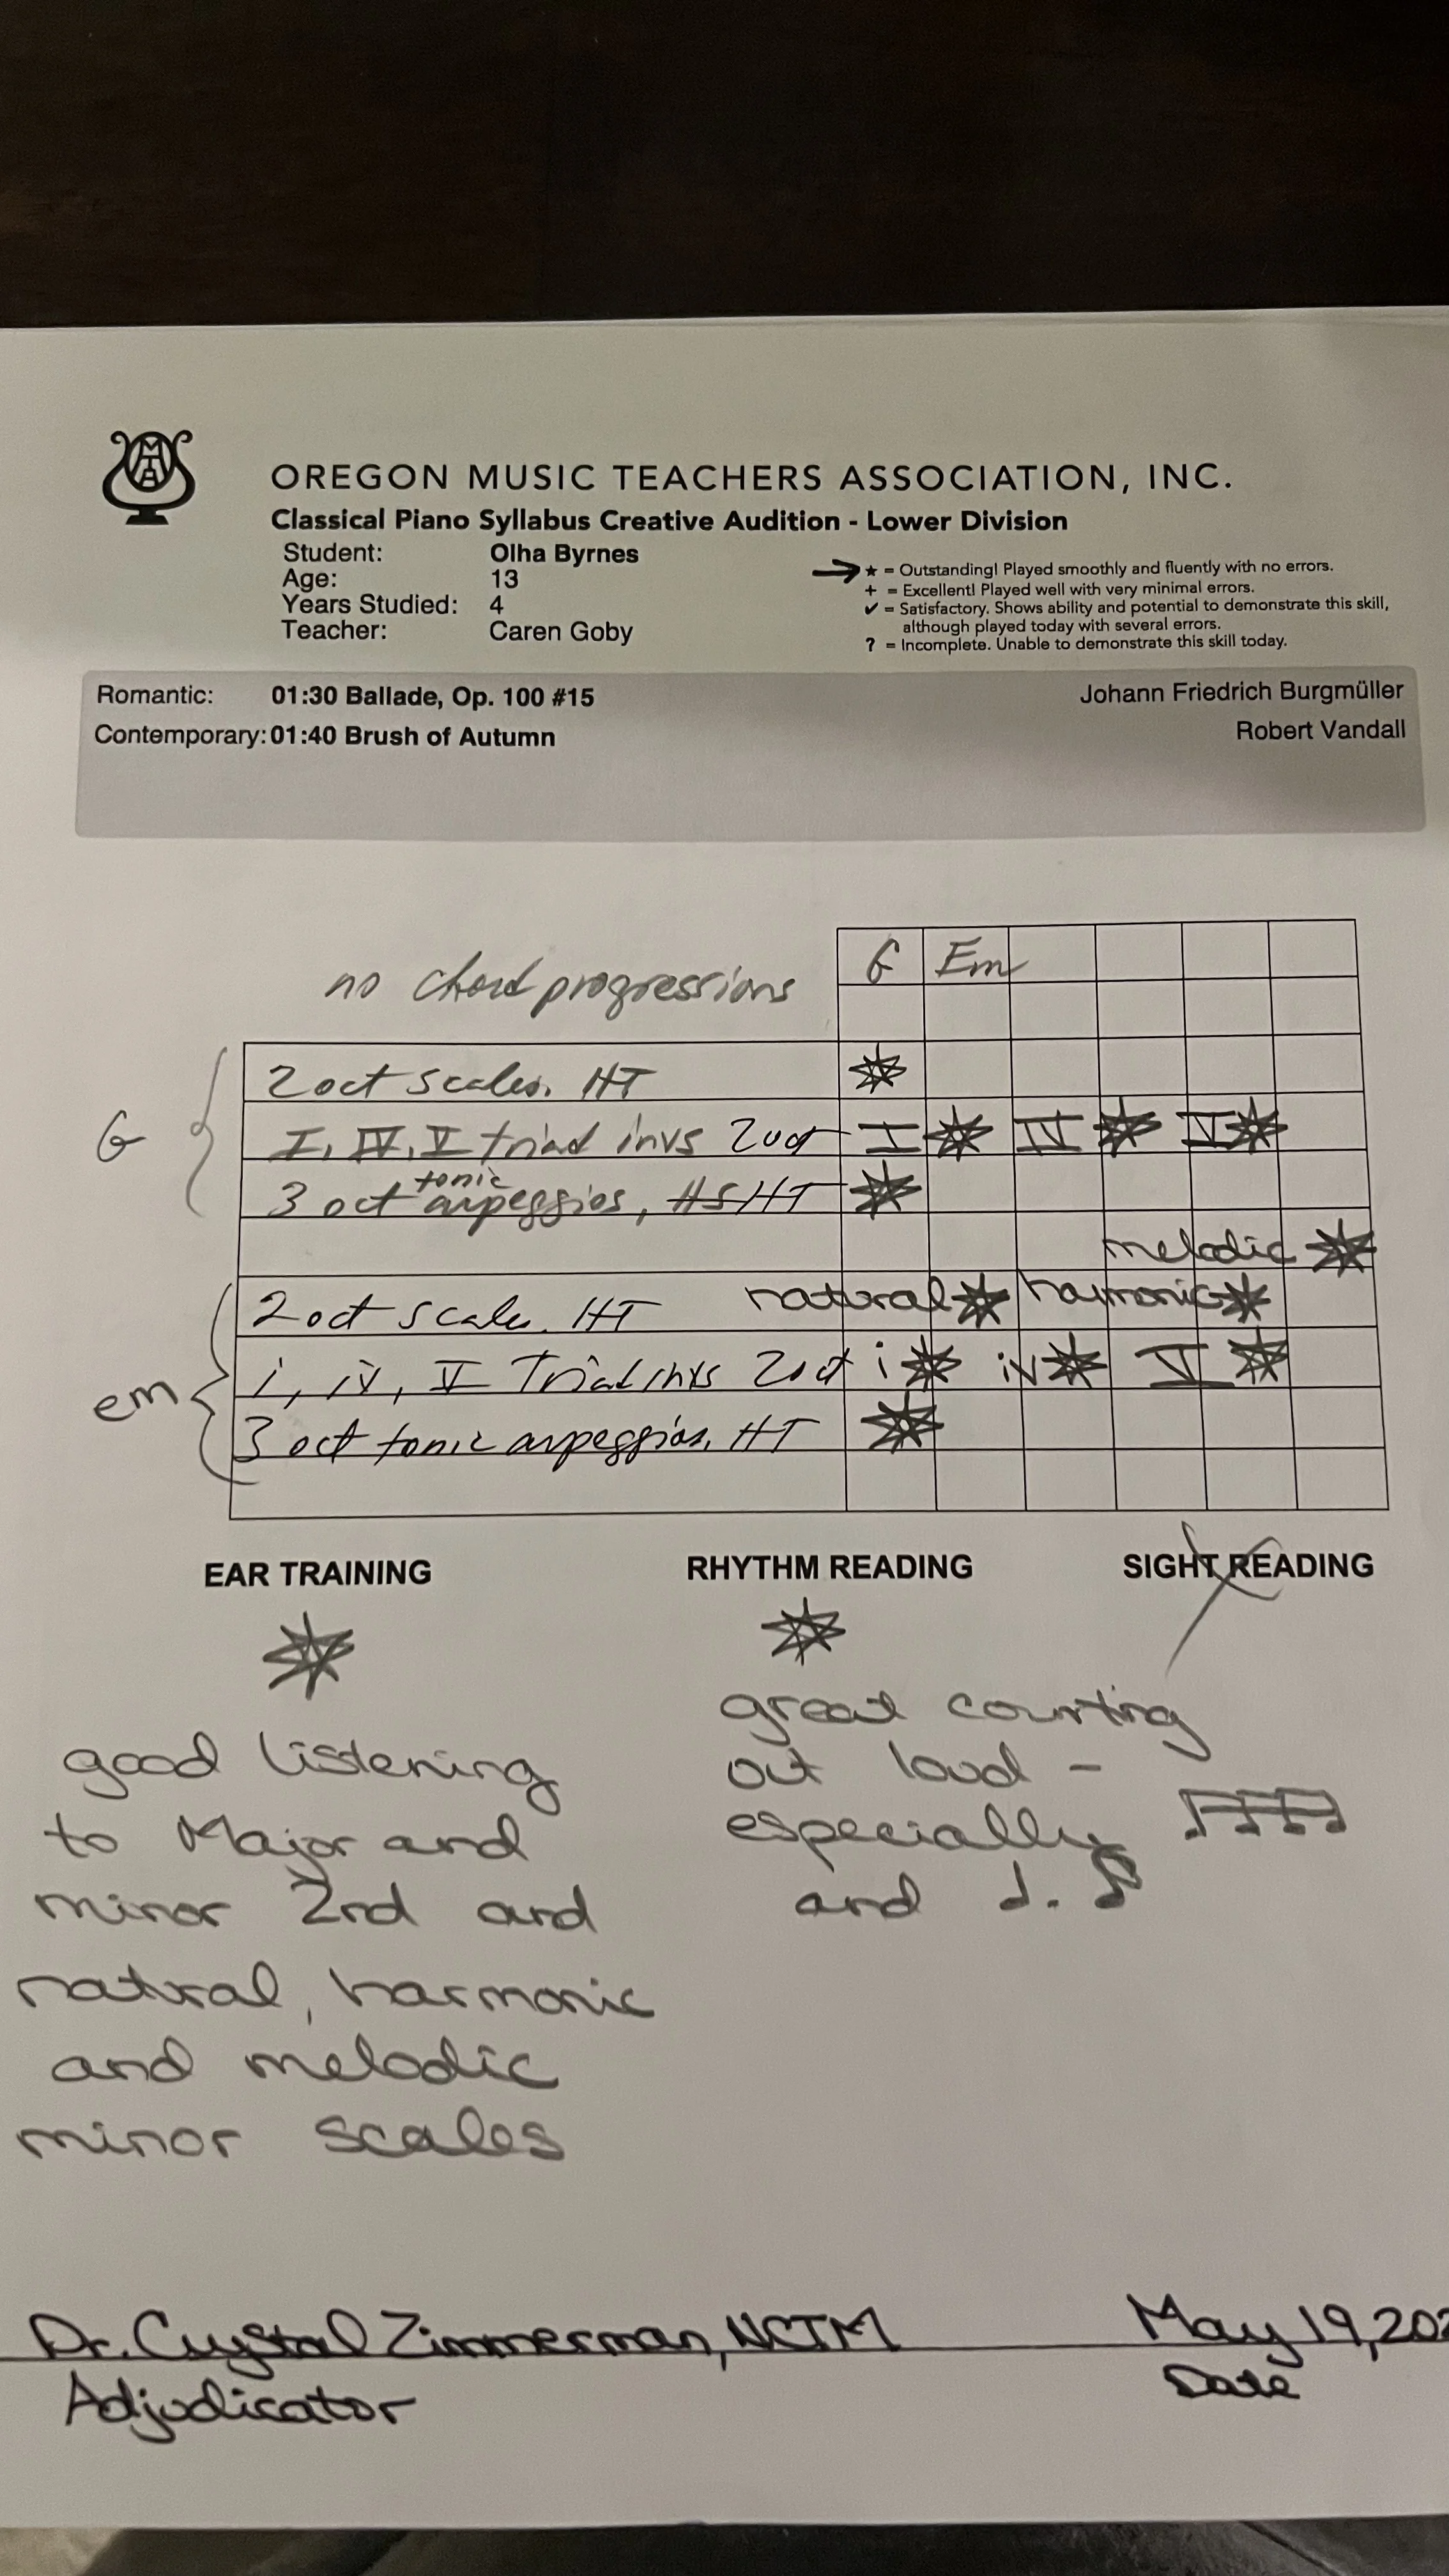 MTNA
OREGON MUSIC TEACHERS ASSOCIATION, INC.
Classical Piano Syllabus Creative Audition - Lower Division
Student: Olha Byrnes
Age: 13
Years Studied: 4
Teacher: Caren Goby
→ ★ = Outstanding! Played smoothly and fluently with no errors.
+ = Excellent! Played well with very minimal errors.
✔ = Satisfactory. Shows ability and potential to demonstrate this skill,
although played today with several errors.
? = Incomplete. Unable to demonstrate this skill today.
Romantic: 01:30 Ballade, Op. 100 #15 Johann Friedrich Burgmüller
Contemporary: 01:40 Brush of Autumn Robert Vandall
no chord progressions G Em
G
2 oct scales. HT
I, IV, V triad invs 2oct I IV V
tonic
3 oct arpeggios, HS HT
melodic
em
2 oct scale. HT natural harmonic
i, iv, V Triad invs 2oct i iv V
3 oct tonic arpeggios. HT
EAR TRAINING RHYTHM READING SIGHT READING
good listening
to Major and
minor 2nd and
natural, harmonic
and melodic
minor scales
great counting
out loud -
especially ♬♬
and ♩. ♪
Dr. Crystal Zimmerman, NCTM May 19, 202
Adjudicator Date